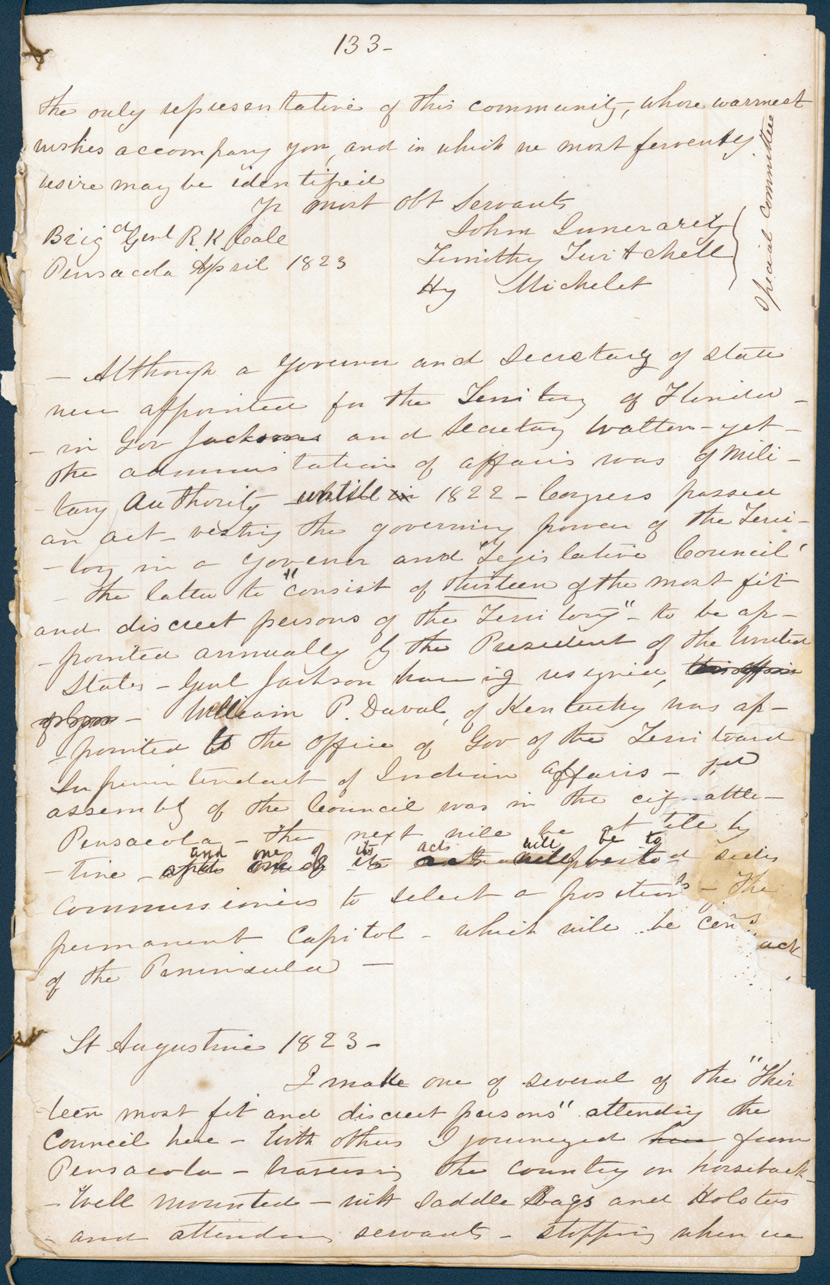 133-
the only representative of this community, whose warmest
wishes accompany you, and in which we most fervently
desire may be identified
Yr most obt Servants
Brigd Genl R K Cale
John Innerarity
Pensacola April 1823
Timothy Twitchell
Hy Michelet
Special Committee
- Although a Governor and Secretary of State
were appointed for the Territory of Florida -
- in Gov Jackson and Secretary Walton - yet -
the administration of affairs was of Mili-
-tary Authority - untill in 1822 - Congress passed
an act - vesting the governing power of the Terri-
-tory in a Governor and "Legislative Council"
- the latter to "consist of thirteen of the most fit
and discreet persons of the Territory" - to be ap-
-pointed annually by the President of the United
States - Genl Jackson having resigned,
- William P. Duval, of Kentucky was ap-
-pointed to the Office of Gov of the Territory and
Superintendent of Indian affairs - 1st
assembly of the Council was in the city
Pensacola - the next will be at
-tine - and one of its acts will be to
commissioners to select a position - The
permanent Capitol - which will be
of the Peninsula -
St Augustine 1823 -
I make one of several of the "Thir
teen most fit and discreet persons" attending the
Council here - With others I journeyed from
Pensacola - traversing the country on horseback -
- Well mounted - with Saddle Bags and Holsters
- and attending servants - stopping when we